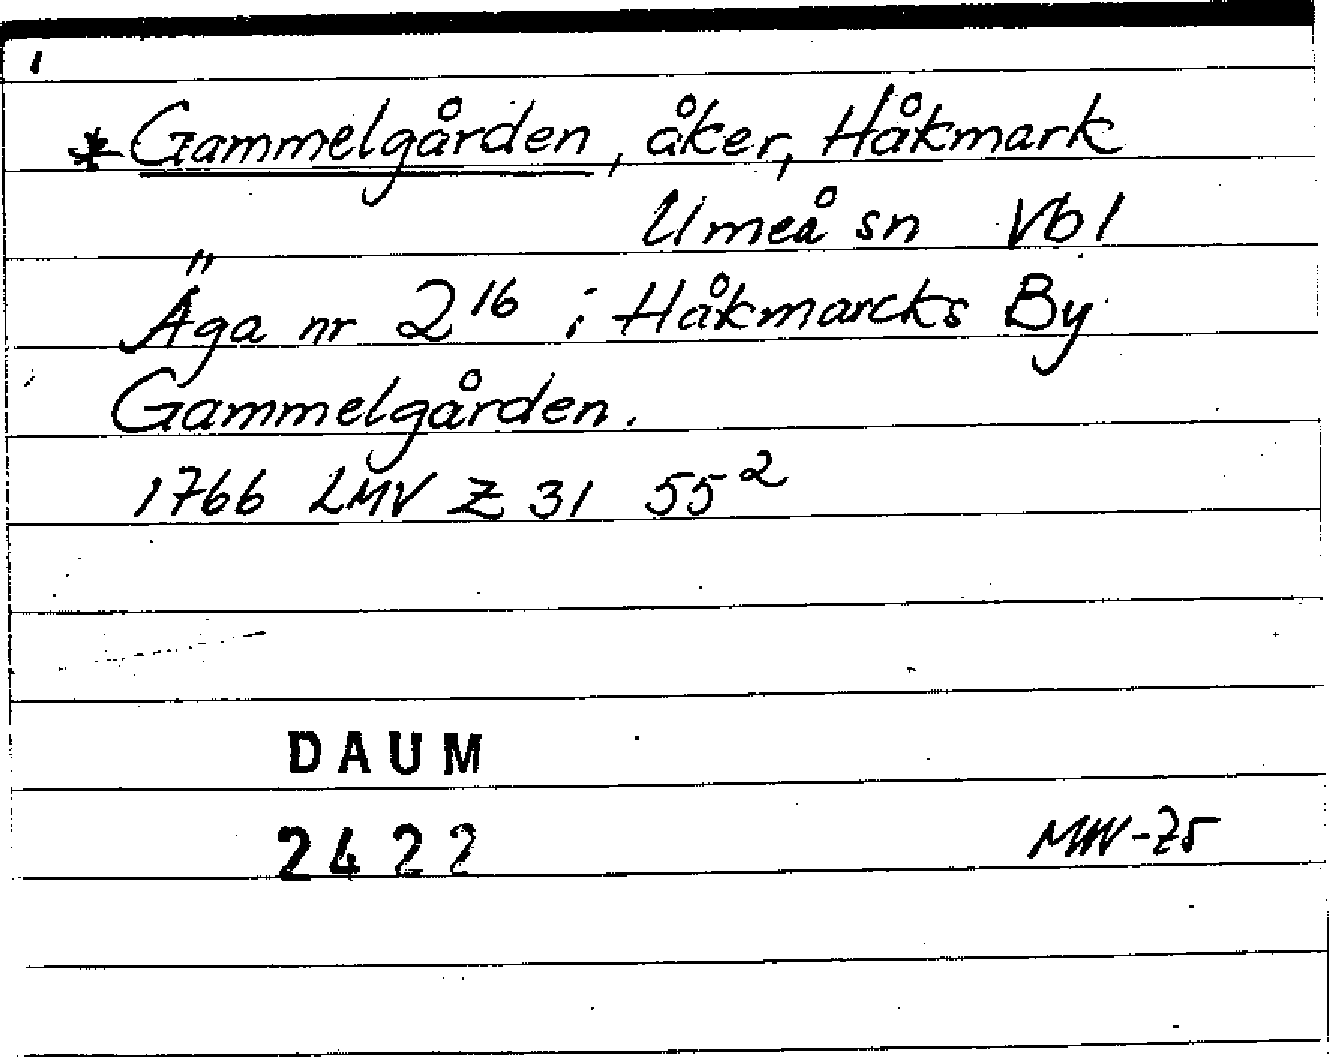 * Gammelgården, åker, Håkmark
Umeå sn Vbl
Äga nr 2¹⁶ i Håkmarcks By
Gammelgården.
1766 LMV Z 31 55²
DAUM
2422
MW-75